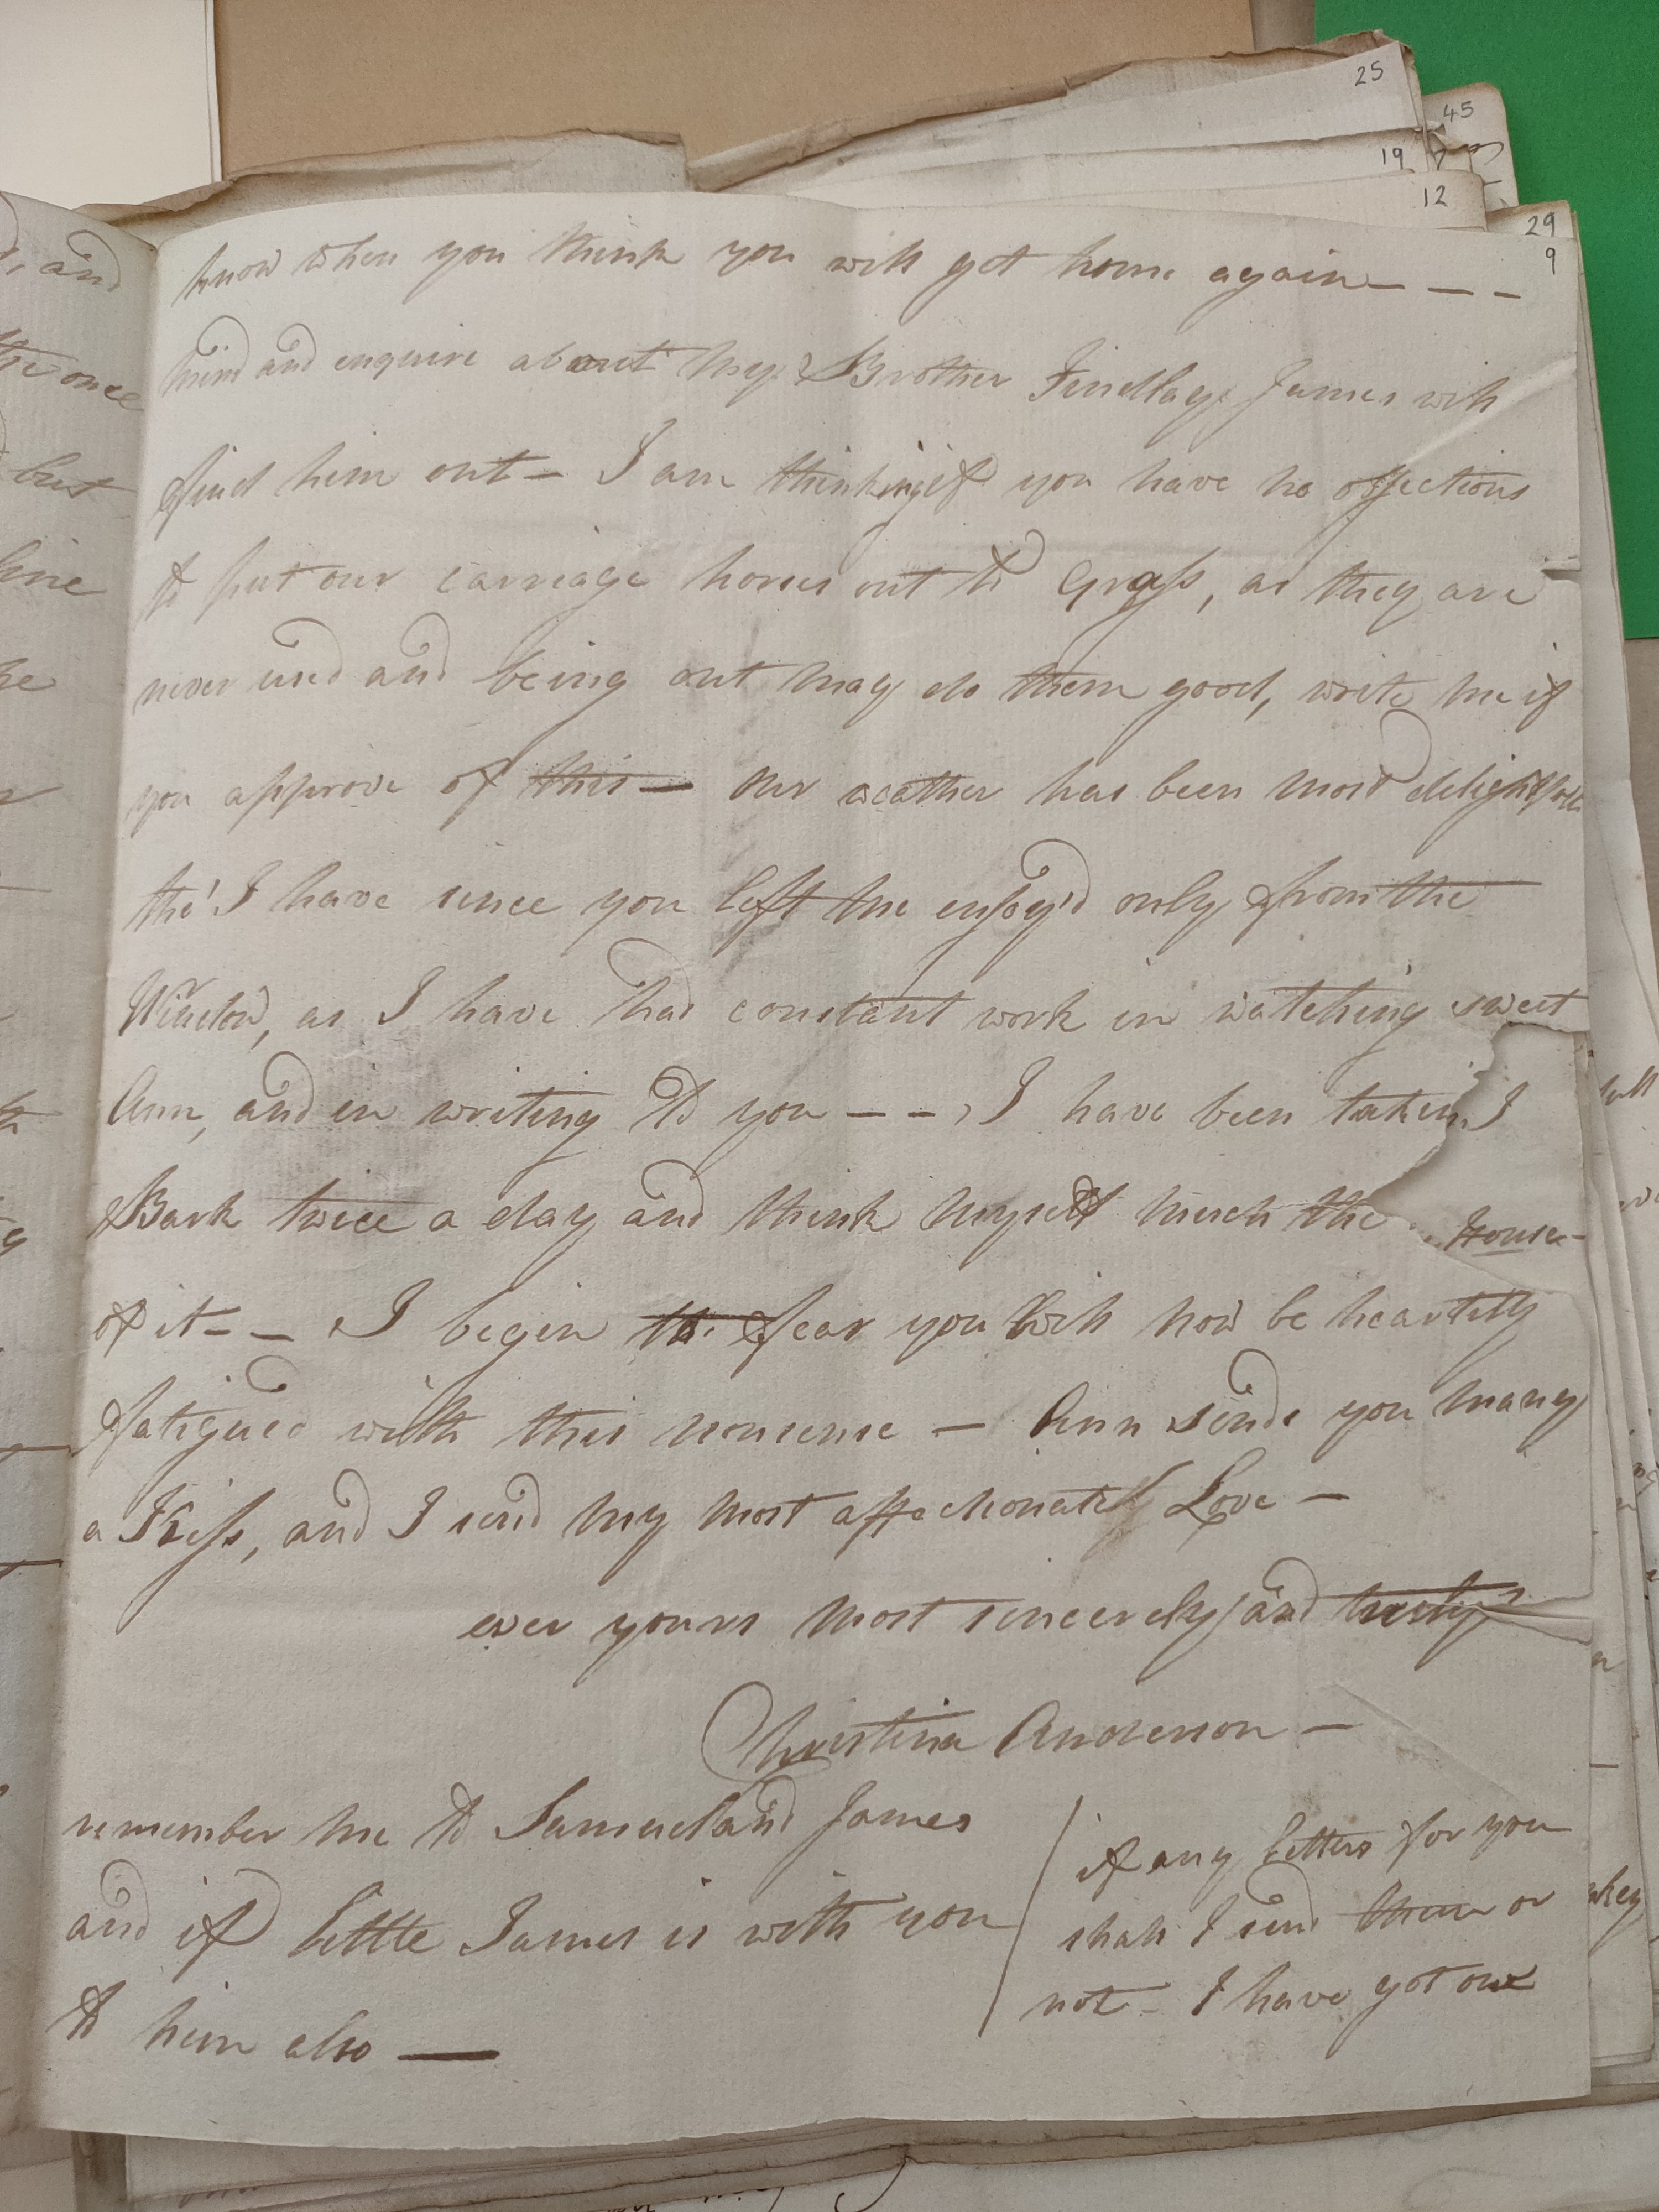 25
45
19
12
29
9
know when you think you will get home again - - -
mind and enquire about my Brother Findlay James will
find him out - I am thinking if you have no objections
to put our carriage horses out to Grass, as they are
never used and being out may do them good, write me if
you approve of this - our weather has been most delightful
tho' I have since you left me enjoy'd only from the
Window, as I have had constant work in watching sweet
Ann, and in writing to you - - , I have been taking
Bark twice a day and think myself much the
of it - - I begin to fear you will now be heartily
fatigued with this nonsense - Ann sends you many
a Kiss, and I send my most affectionately Love -
ever yours most sincerely and truly
Christina Anderson -
remember me to Samuel and James
and if little James is with you
to him also -
if any letters for you
shall I send them or
not - I have got one
and
the once
but